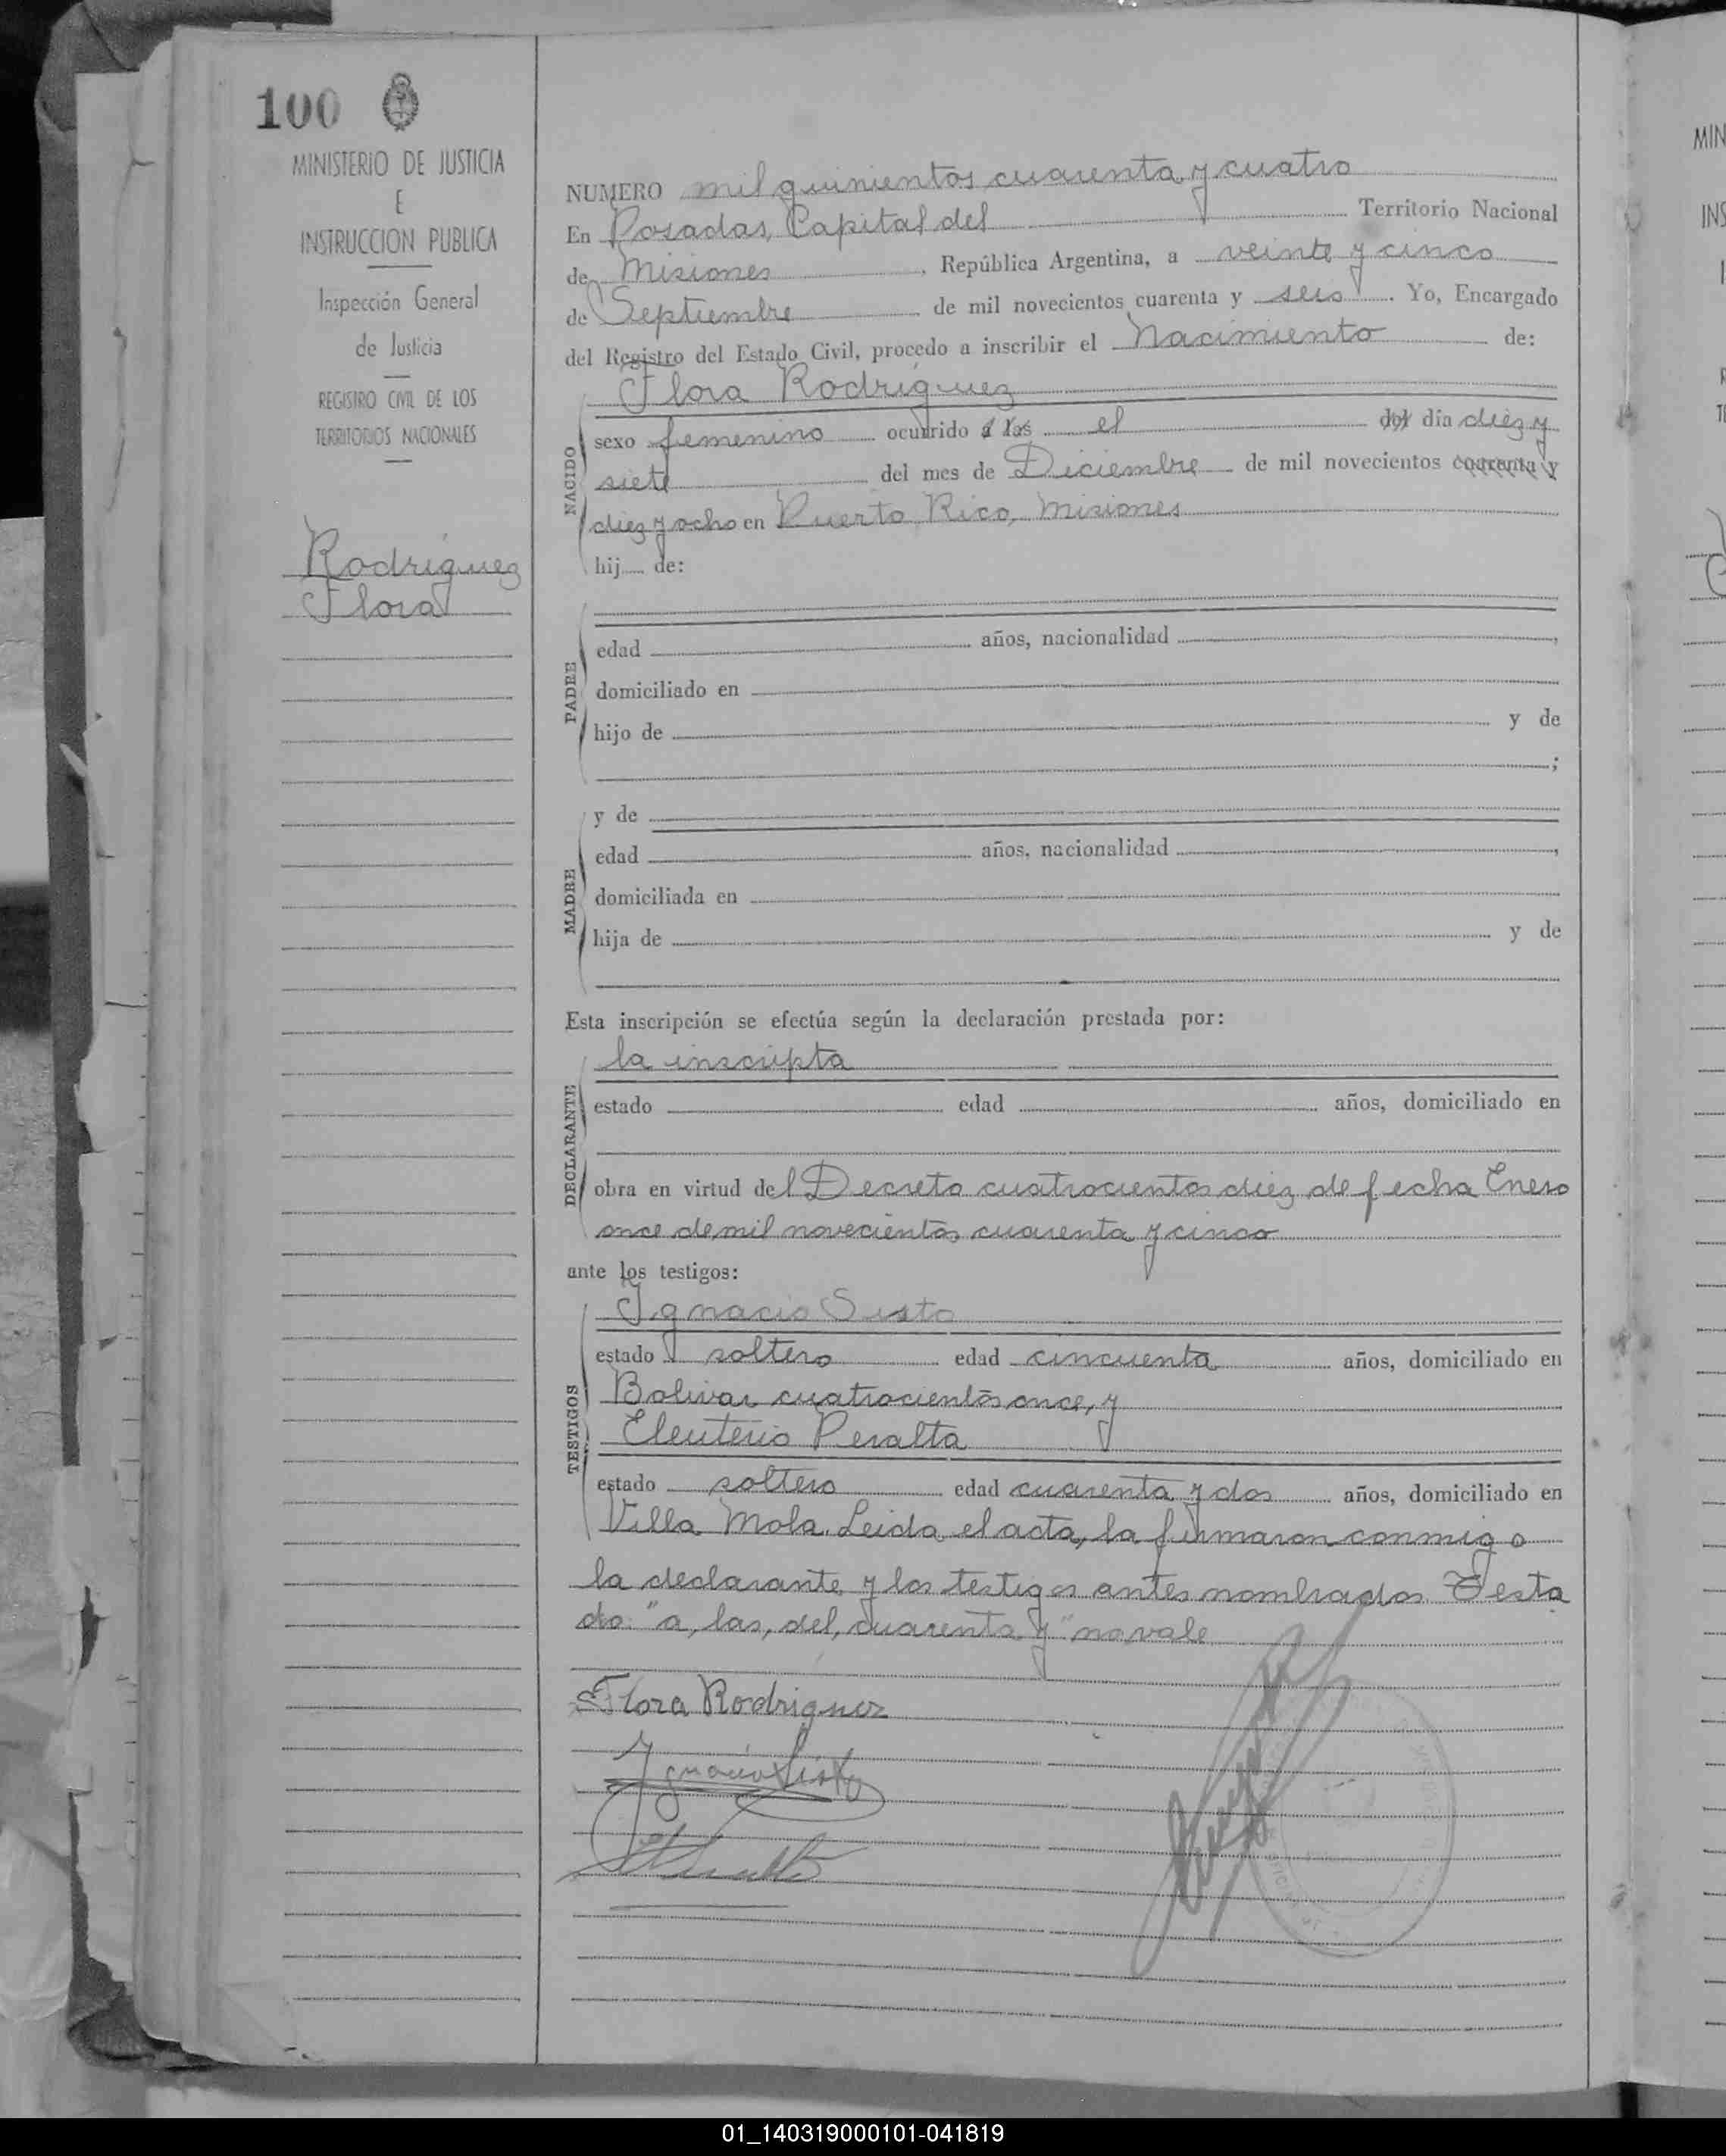 100
MINISTERIO DE JUSTICIA
E
INSTRUCCION PUBLICA
Inspección General
de Justicia
REGISTRO CIVIL DE LOS
TERRITORIOS NACIONALES
Rodríguez
Flora
NUMERO mil quinientos cuarenta y cuatro
En Posadas, Capital del Territorio Nacional
de Misiones, República Argentina, a veinte y cinco
de Septiembre de mil novecientos cuarenta y seis. Yo, Encargado
del Registro del Estado Civil, procedo a inscribir el Nacimiento de:
Flora Rodríguez
NACIDO
sexo femenino ocurrido á las el del día diez y
siete del mes de Diciembre de mil novecientos cuarenta y
diez y ocho en Puerto Rico, Misiones
hij de:
PADRE
edad años, nacionalidad ,
domiciliado en
hijo de y de
;
MADRE
y de
edad años, nacionalidad ,
domiciliada en
hija de y de
Esta inscripción se efectúa según la declaración prestada por:
DECLARANTE
la inscripta
estado edad años, domiciliado en
obra en virtud del Decreto cuatrocientos diez de fecha Enero
once de mil novecientos cuarenta y cinco
ante los testigos:
TESTIGOS
Ignacio Sisto
estado soltero edad cincuenta años, domiciliado en
Bolivar cuatrocientos once, y
Eleuterio Peralta
estado soltero edad cuarenta y dos años, domiciliado en
Villa Mola. Leida el acta, la firmaron conmigo
la declarante y los testigos antes nombrados. Testa
do: "a, las, del, cuarenta y" no vale
Flora Rodriguez
Ignacio Sisto
MIN
INS
01_140319000101-041819